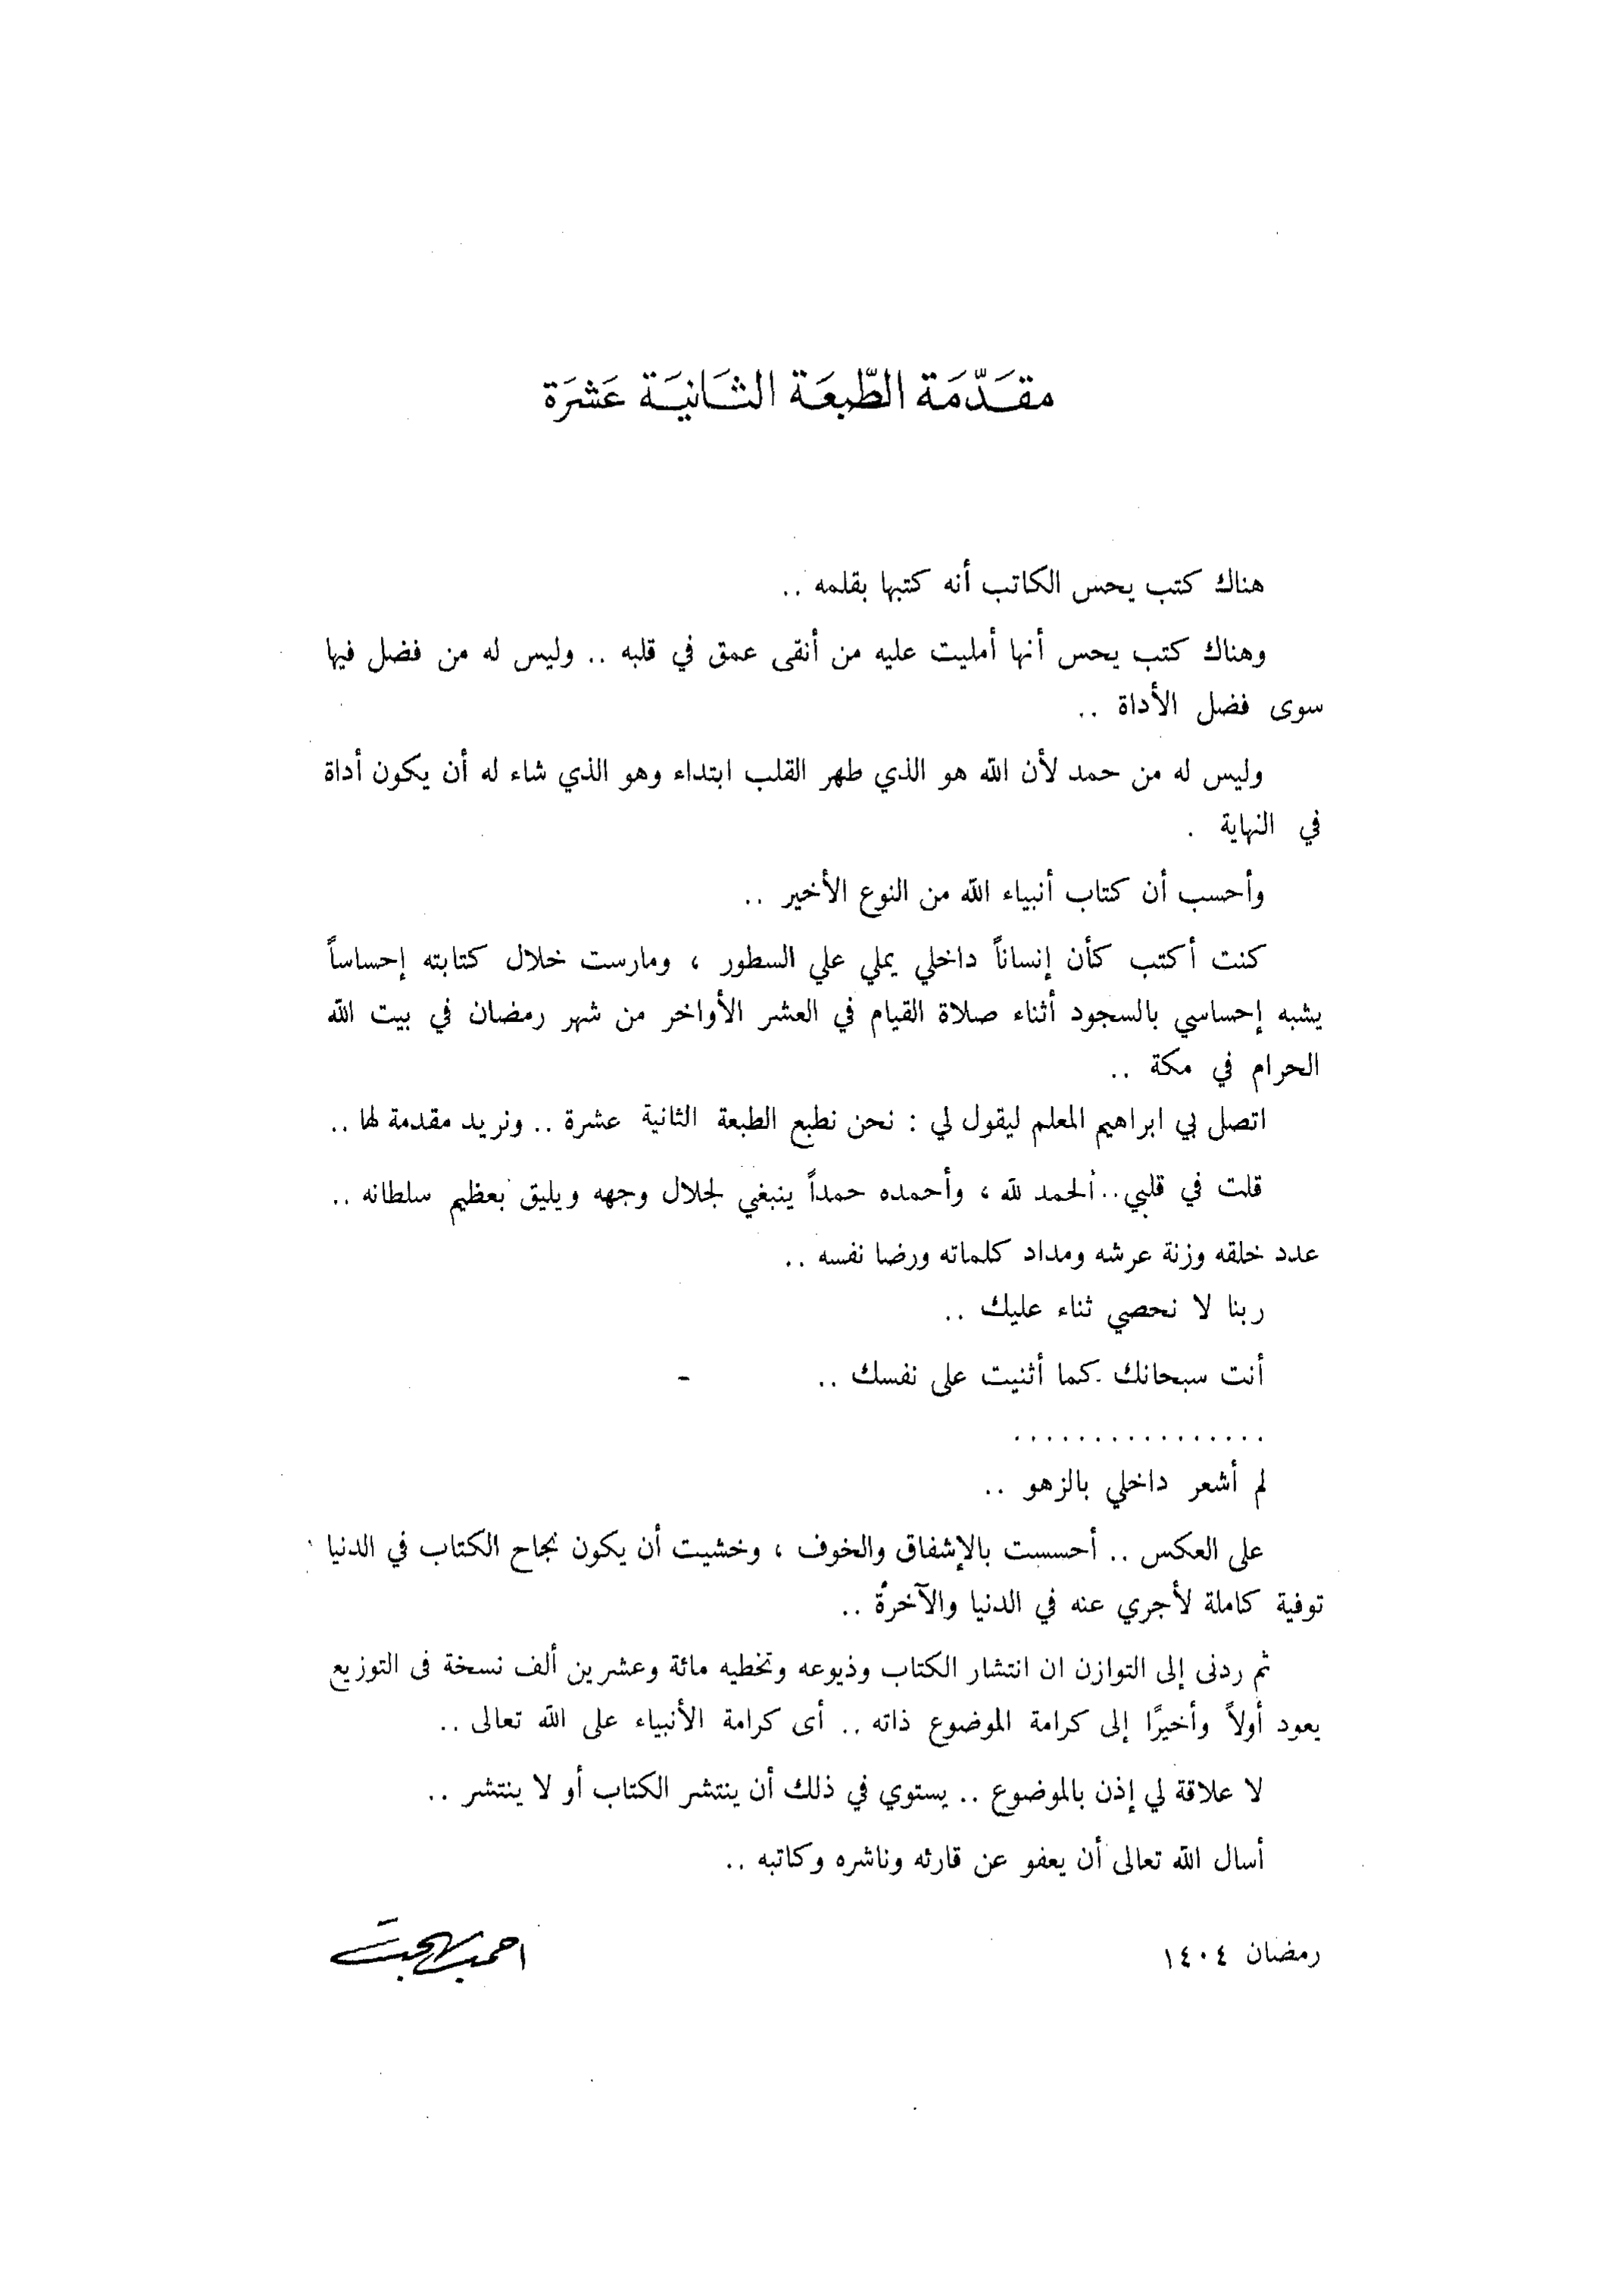 مقَدّمَة الطّبعَة الثَانيَة عَشرَة
هناك كتب يحس الكاتب أنه كتبها بقلمه ..
وهناك كتب يحس أنها أمليت عليه من أنقى عمق في قلبه .. وليس له من فضل فيها
سوى فضل الأداة ..
وليس له من حمد لأن الله هو الذي طهر القلب ابتداء وهو الذي شاء له أن يكون أداة
في النهاية .
وأحسب أن كتاب أنبياء الله من النوع الأخير ..
كنت أكتب كأن إنساناً داخلي يملي علي السطور ، ومارست خلال كتابته إحساساً
يشبه إحساسي بالسجود أثناء صلاة القيام في العشر الأواخر من شهر رمضان في بيت الله
الحرام في مكة ..
اتصل بي ابراهيم المعلم ليقول لي : نحن نطبع الطبعة الثانية عشرة .. ونريد مقدمة لها ..
قلت في قلبي .. الحمد لله ، وأحمده حمداً ينبغي لجلال وجهه ويليق بعظيم سلطانه ..
عدد خلقه وزنة عرشه ومداد كلماته ورضا نفسه ..
ربنا لا نحصي ثناء عليك ..
أنت سبحانك كما أثنيت على نفسك ..
................
لم أشعر داخلي بالزهو ..
على العكس .. أحسست بالإشفاق والخوف ، وخشيت أن يكون نجاح الكتاب في الدنيا
توفية كاملة لأجري عنه في الدنيا والآخرة ..
ثم ردنى إلى التوازن ان انتشار الكتاب وذيوعه وتخطيه مائة وعشرين ألف نسخة فى التوزيع
يعود أولاً وأخيرًا إلى كرامة الموضوع ذاته .. أى كرامة الأنبياء على الله تعالى ..
لا علاقة لي إذن بالموضوع .. يستوي في ذلك أن ينتشر الكتاب أو لا ينتشر ..
أسال الله تعالى أن يعفو عن قارئه وناشره وكاتبه ..
رمضان ١٤٠٤
احمد بهجت